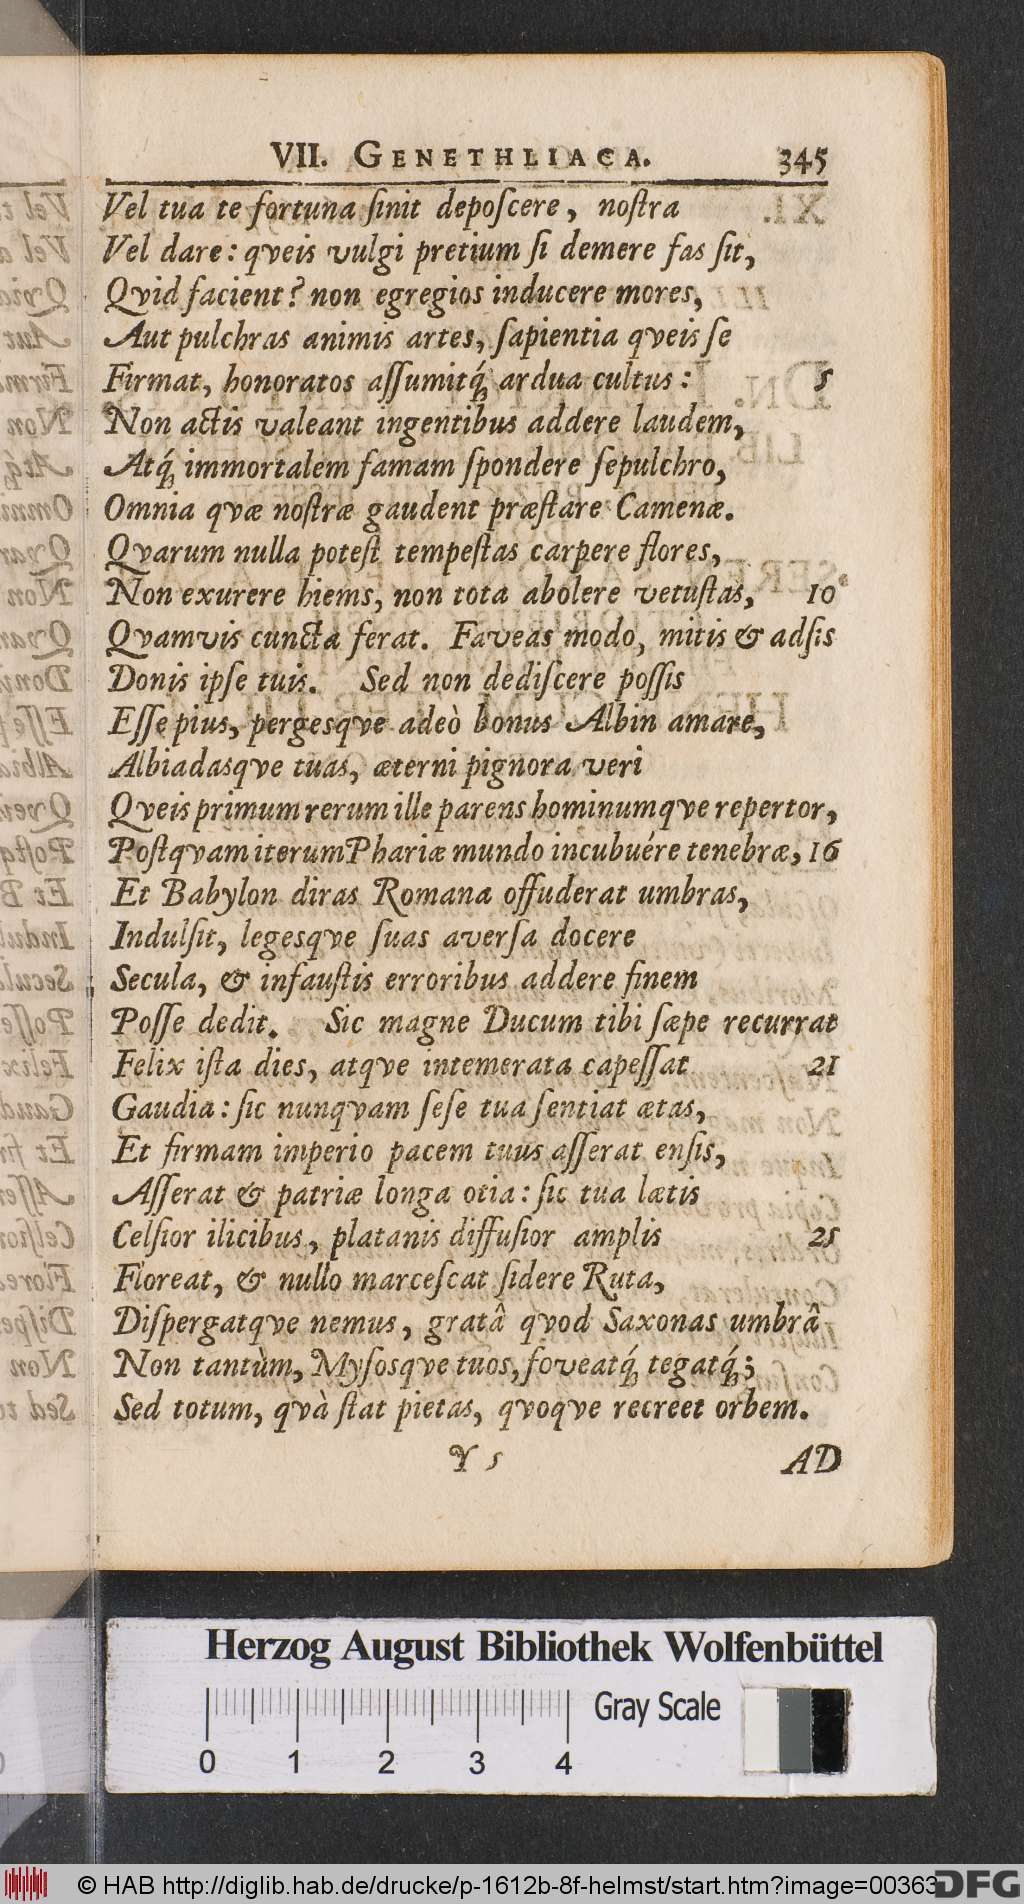 VII. GENETHLIACA. 345
Vel tua te fortuna ſinit depoſcere, noſtra
Vel dare: qveis vulgi pretium ſi demere fas ſit,
Qvid facient? non egregios inducere mores,
Aut pulchras animis artes, ſapientia qveis ſe
Firmat, honoratos aſſumitq́; ardua cultus: 5
Non actis valeant ingentibus addere laudem,
Atq́; immortalem famam ſpondere ſepulchro,
Omnia qvæ noſtræ gaudent præſtare Camenæ.
Qvarum nulla poteſt tempeſtas carpere flores,
Non exurere hiems, non tota abolere vetuſtas, 10
Qvamvis cuncta ferat. Faveas modo, mitis & adſis
Donis ipſe tuis. Sed non dediſcere poſſis
Eſſe pius, pergesqve adeò bonus Albin amare,
Albiadasqve tuas, æterni pignora veri
Qveis primum rerum ille parens hominumqve repertor,
Poſtqvam iterum Phariæ mundo incubuére tenebræ, 16
Et Babylon diras Romana offuderat umbras,
Indulſit, legesqve ſuas averſa docere
Secula, & infauſtis erroribus addere finem
Poſſe dedit. Sic magne Ducum tibi ſæpe recurrat
Felix iſta dies, atqve intemerata capeſſat 21
Gaudia: ſic nunqvam ſeſe tua ſentiat ætas,
Et firmam imperio pacem tuus aſſerat enſis,
Aſſerat & patriæ longa otia: ſic tua lætis
Celſior ilicibus, platanis diffuſior amplis 25
Floreat, & nullo marceſcat ſidere Ruta,
Diſpergatqve nemus, gratâ qvod Saxonas umbrâ
Non tantùm, Myſosqve tuos, foveatq́; tegatq́;;
Sed totum, qvà ſtat pietas, qvoqve recreet orbem.
Y 5 AD
Herzog August Bibliothek Wolfenbüttel
Gray Scale
0 1 2 3 4
© HAB http://diglib.hab.de/drucke/p-1612b-8f-helmst/start.htm?image=00363
DFG